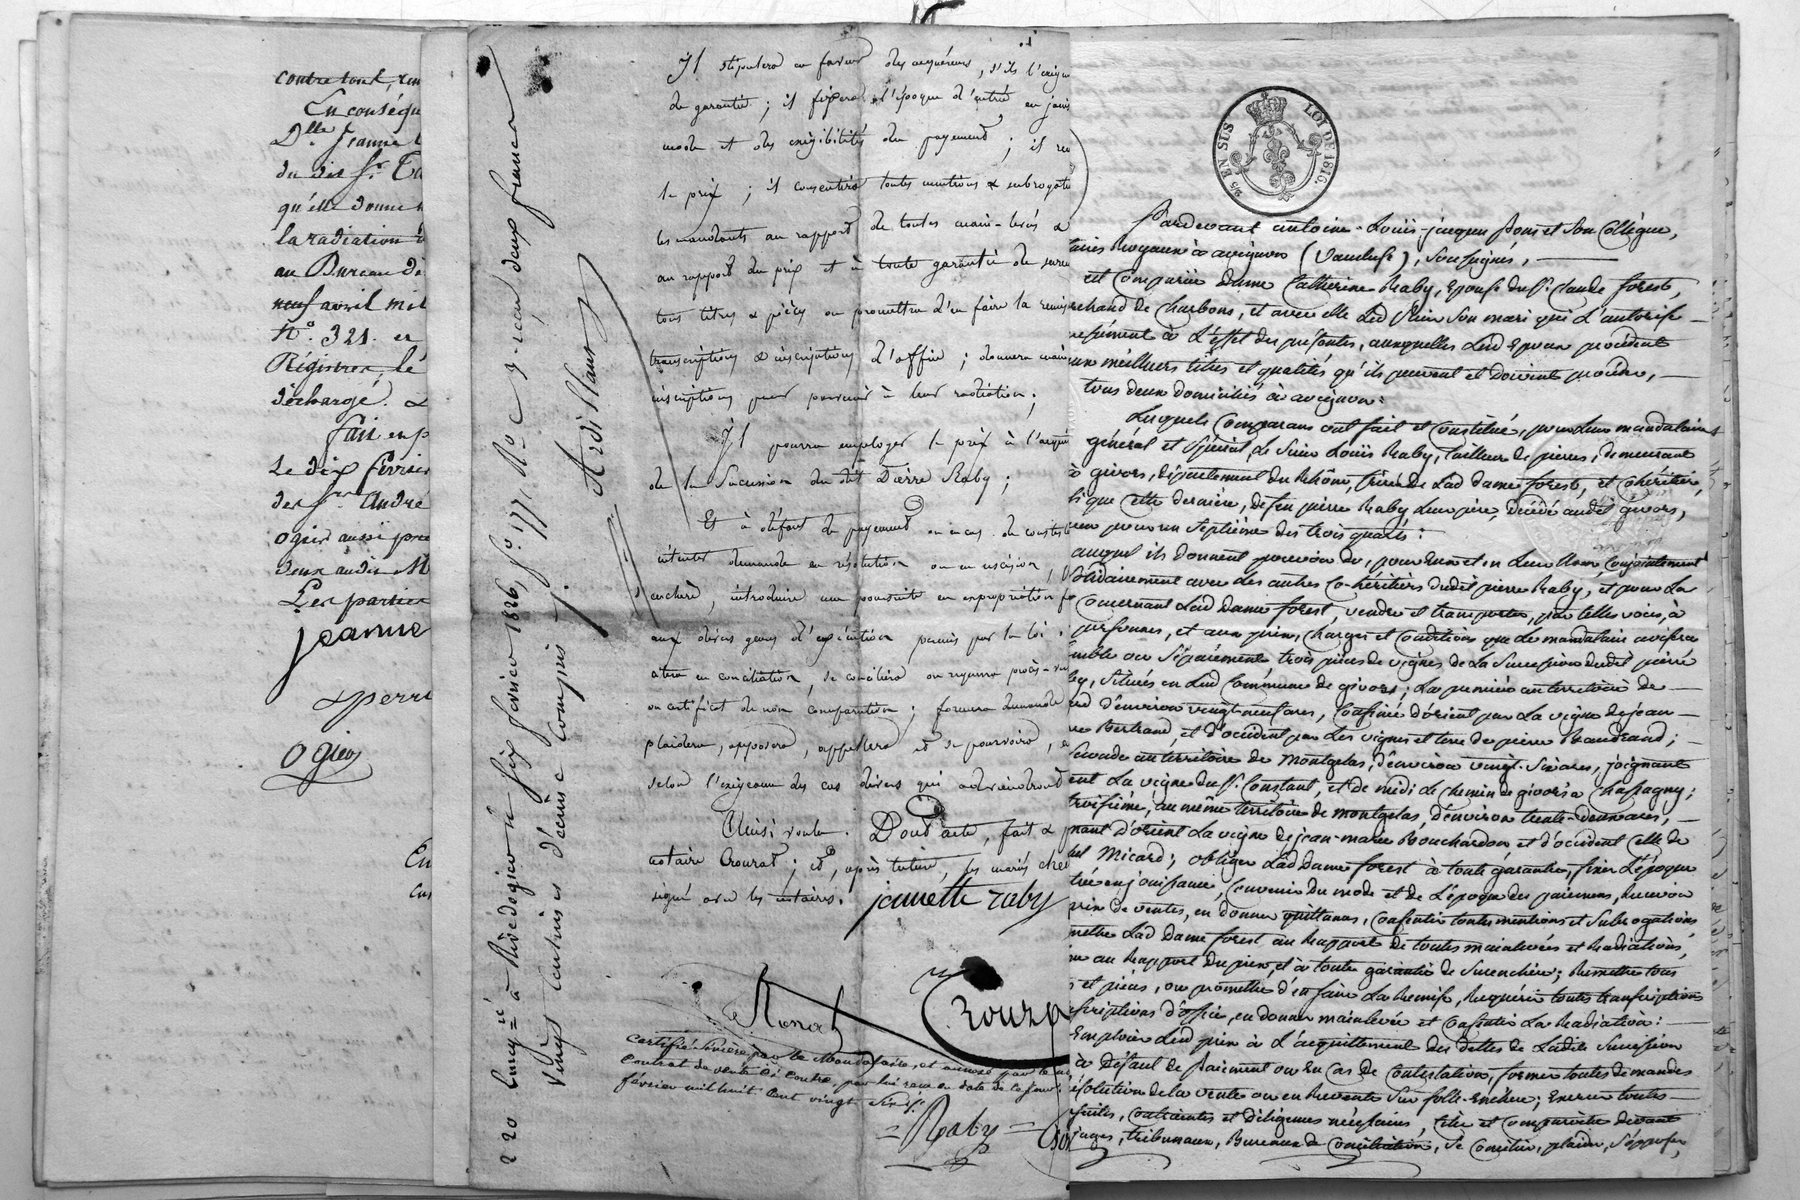 contre tout, 
En conséqu
Dlle Jeanne
du dit Sr.
qu'elle donne
la radiation
au Bureau de
neuf avril mil
No. 321. et
Régistres, le
déchargé. &
fait en p
Le dix février
des Srs. André
ogier aussi pro
deux audit M
Les parties
jeanne
& perr
Ogier
En
Il stipulera en faveur des acquéreurs, s'ils l'exige
de garantie ; il fixera l'époque d'entrée en joui
mode et des exigibilités du payement ; il re
le prix ; il consentira toutes mentions & subrogati
les mandants au rapport de toutes main-levées &
au rapport du prix et à toute garantie de suren
tous titres & pièces ou promettra d'en faire la remis
transcriptions & inscriptions d'office ; donnera main
inscriptions pour parvenir à leur radiation ;
Il pourra employer le prix à l'acqui
de la Succession du dit Pierre Raby ;
Et à défaut de payement ou en cas de contest
intenter demande en résolution ou en rescision,
enchère, introduire une poursuite en expropriation fo
aux divers genres d'exécution permis par la loi
citera en conciliation, se conciliera ou requerra procès-ver
ou certificat de non comparution ; formera demande
plaidera, opposera, appellera et se pourvoira,
selon l'exigeance des cas divers qui adviendront
Ainsi voulu. Dont acte, fait &
notaire Crouzat ; et, après lecture, les mariés
signé avec les notaires.
jeanette raby
Crouza
Certifié Sincère par le Mandataire, et annexé par le
Contrat de vente Ci Contre, par lui reçu en date de ce jour
février mil huit Cent vingt Six
Raby
220 Enregé à Rivedegier le six février 1826, fo. 171, Ro. C 3. reçu deux francs
Vingt Centimes décime Compris
Ardillant
25 EN SUS LOI DE 1816.
Pardevant antoine-Louis-jacques Pons et Son Collègue,
taires Royaux à avignon (Vaucluse), Soussignés,
est Comparüe Dame Catherine Raby, Epouse du Sr. Claude forest,
rchand de Charbons, et avec elle Led Sieur Son mari qui L'autorise
ressément à L'effet des présentes, auxquelles Led Epoux procèdent
aux meilleurs titres et qualités qu'ils peuvent et doivent procéder,
tous deux domiciliés à avignon :
Lesquels Comparans ont fait et Constitué, pour Leur mandataire
général et Spécial, Le Sieur Loüis Raby, tailleur de pierres, demeurant
à givors, département du Rhône, frère de Lad Dame forest, et Cohéritier,
si que cette dernière, de feu pierre Raby Leur père, décédé audit givors,
pour un Septième des trois quarts :
auquel ils donnent pouvoir de, pour Eux et en Leur Nom, Conjointement
Solidairement avec Les autres Co-héritiers dudit pierre Raby, et pour La
Concernant Lad Dame forest, vendre et transporter, par telles voies, à
personnes, et aux prix, Charges et Conditions que Le mandataire avisera
emble ou Séparément trois pièces de vignes de La Succession dudit pierre
by, Situées en Lad Commune de givors ; La première au territoire de
d'environ vingt-neuf ares, Confinée d'orient par La vigne de jean
Bertrand, et d'occident par Les vignes et terre de pierre Baudrand ;
Seconde au territoire de Montgelas, d'environ vingt-Six ares, joignant
ent La vigne du Sr. Constant, et de midi Le Chemin de givors à Chassagny ;
troisième, au même territoire de montgelas, d'environ trente-deux ares,
gnant d'orient La vigne de jean-marie Bouchardon et d'occident Celle de
hel Micard ; obliger Lad Dame forest à toute garantie, fixer L'époque
trée en jouissance, Convenir du mode et de L'époque du paiement, Recevoir
prix de ventes, en donner quittances, Consentir toutes mentions et Subrogations,
mettre Lad Dame forest au Rapport de toutes mainlevées et Radiations,
au Rapport du prix, et à toute garantie de Surenchère ; Remettre tous
s et pièces, ou promettre d'en faire La Remise, Requérir toutes transcriptions
scriptions d'office, en donner mainlevée et Consentir La Radiation :
Emploier Led prix à L'acquittement des dettes de Ladite Succession
à Défaut de paiement ou En Cas de Contestation, former toutes demandes
résolution de la vente ou en Revente Sur folle-Enchère ; Exercer toutes
suites, Contraintes et Diligences nécessaires, Citer et Comparaître devant
juges, tribunaux, Bureaux de Conciliation, Se Concilier, plaider, S'opposer,